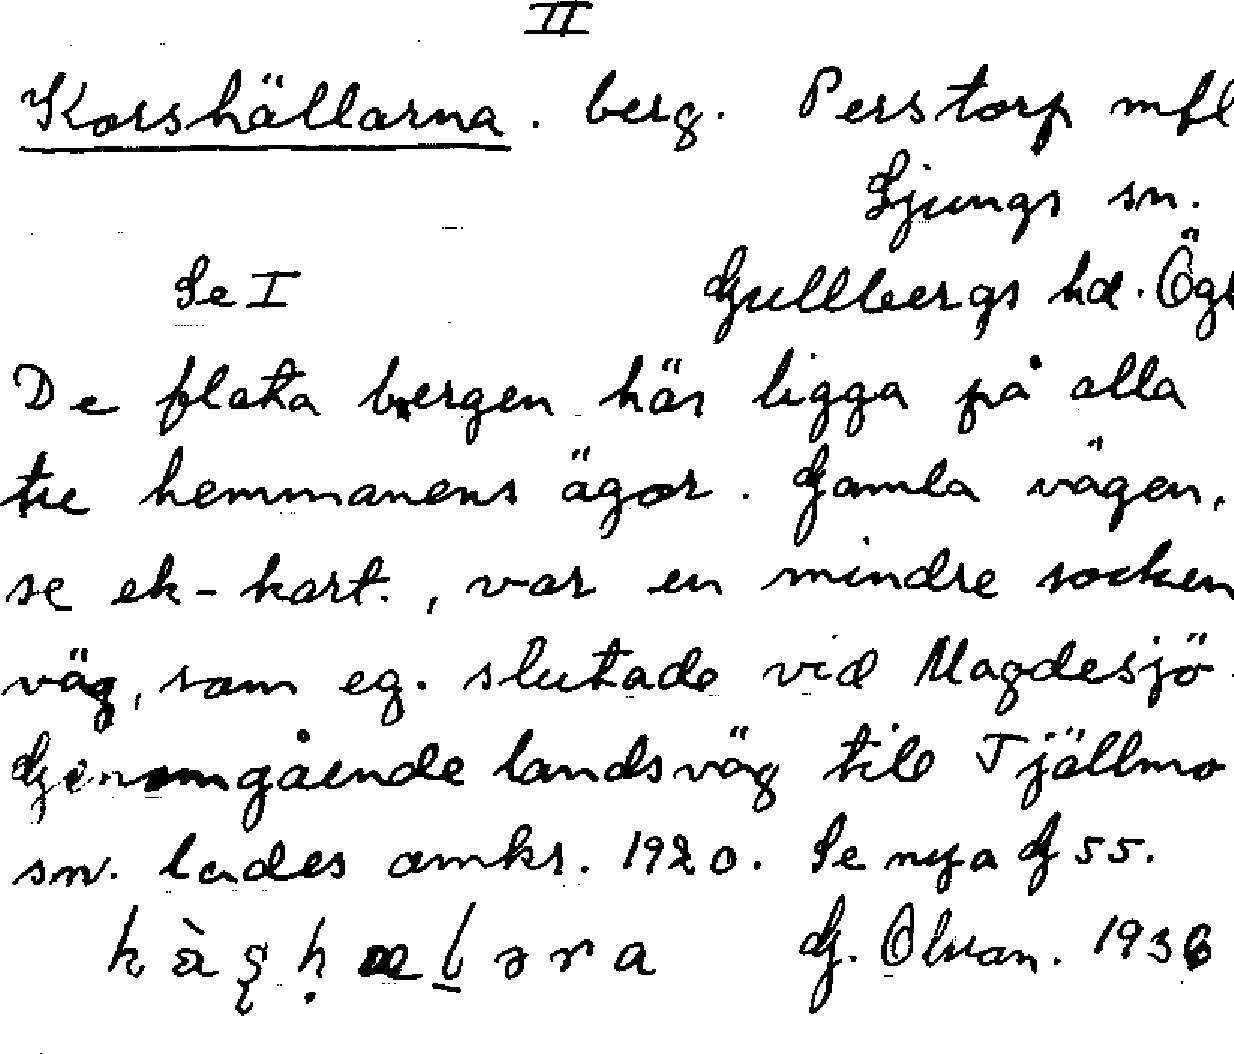 II
Korshällarna. berg. Perstorp mfl
Ljungs sn.
Se I Gullbergs hd. Ögl
De flata bergen här ligga på alla
tre hemmanens ägor. Gamla vägen,
se ek-kart., var en mindre socken
väg, som eg. slutade vid Magdesjö.
Genomgående landsväg till Tjällmo
sn. lades omkr. 1920. Se nya G 55.
G. Olson. 1936